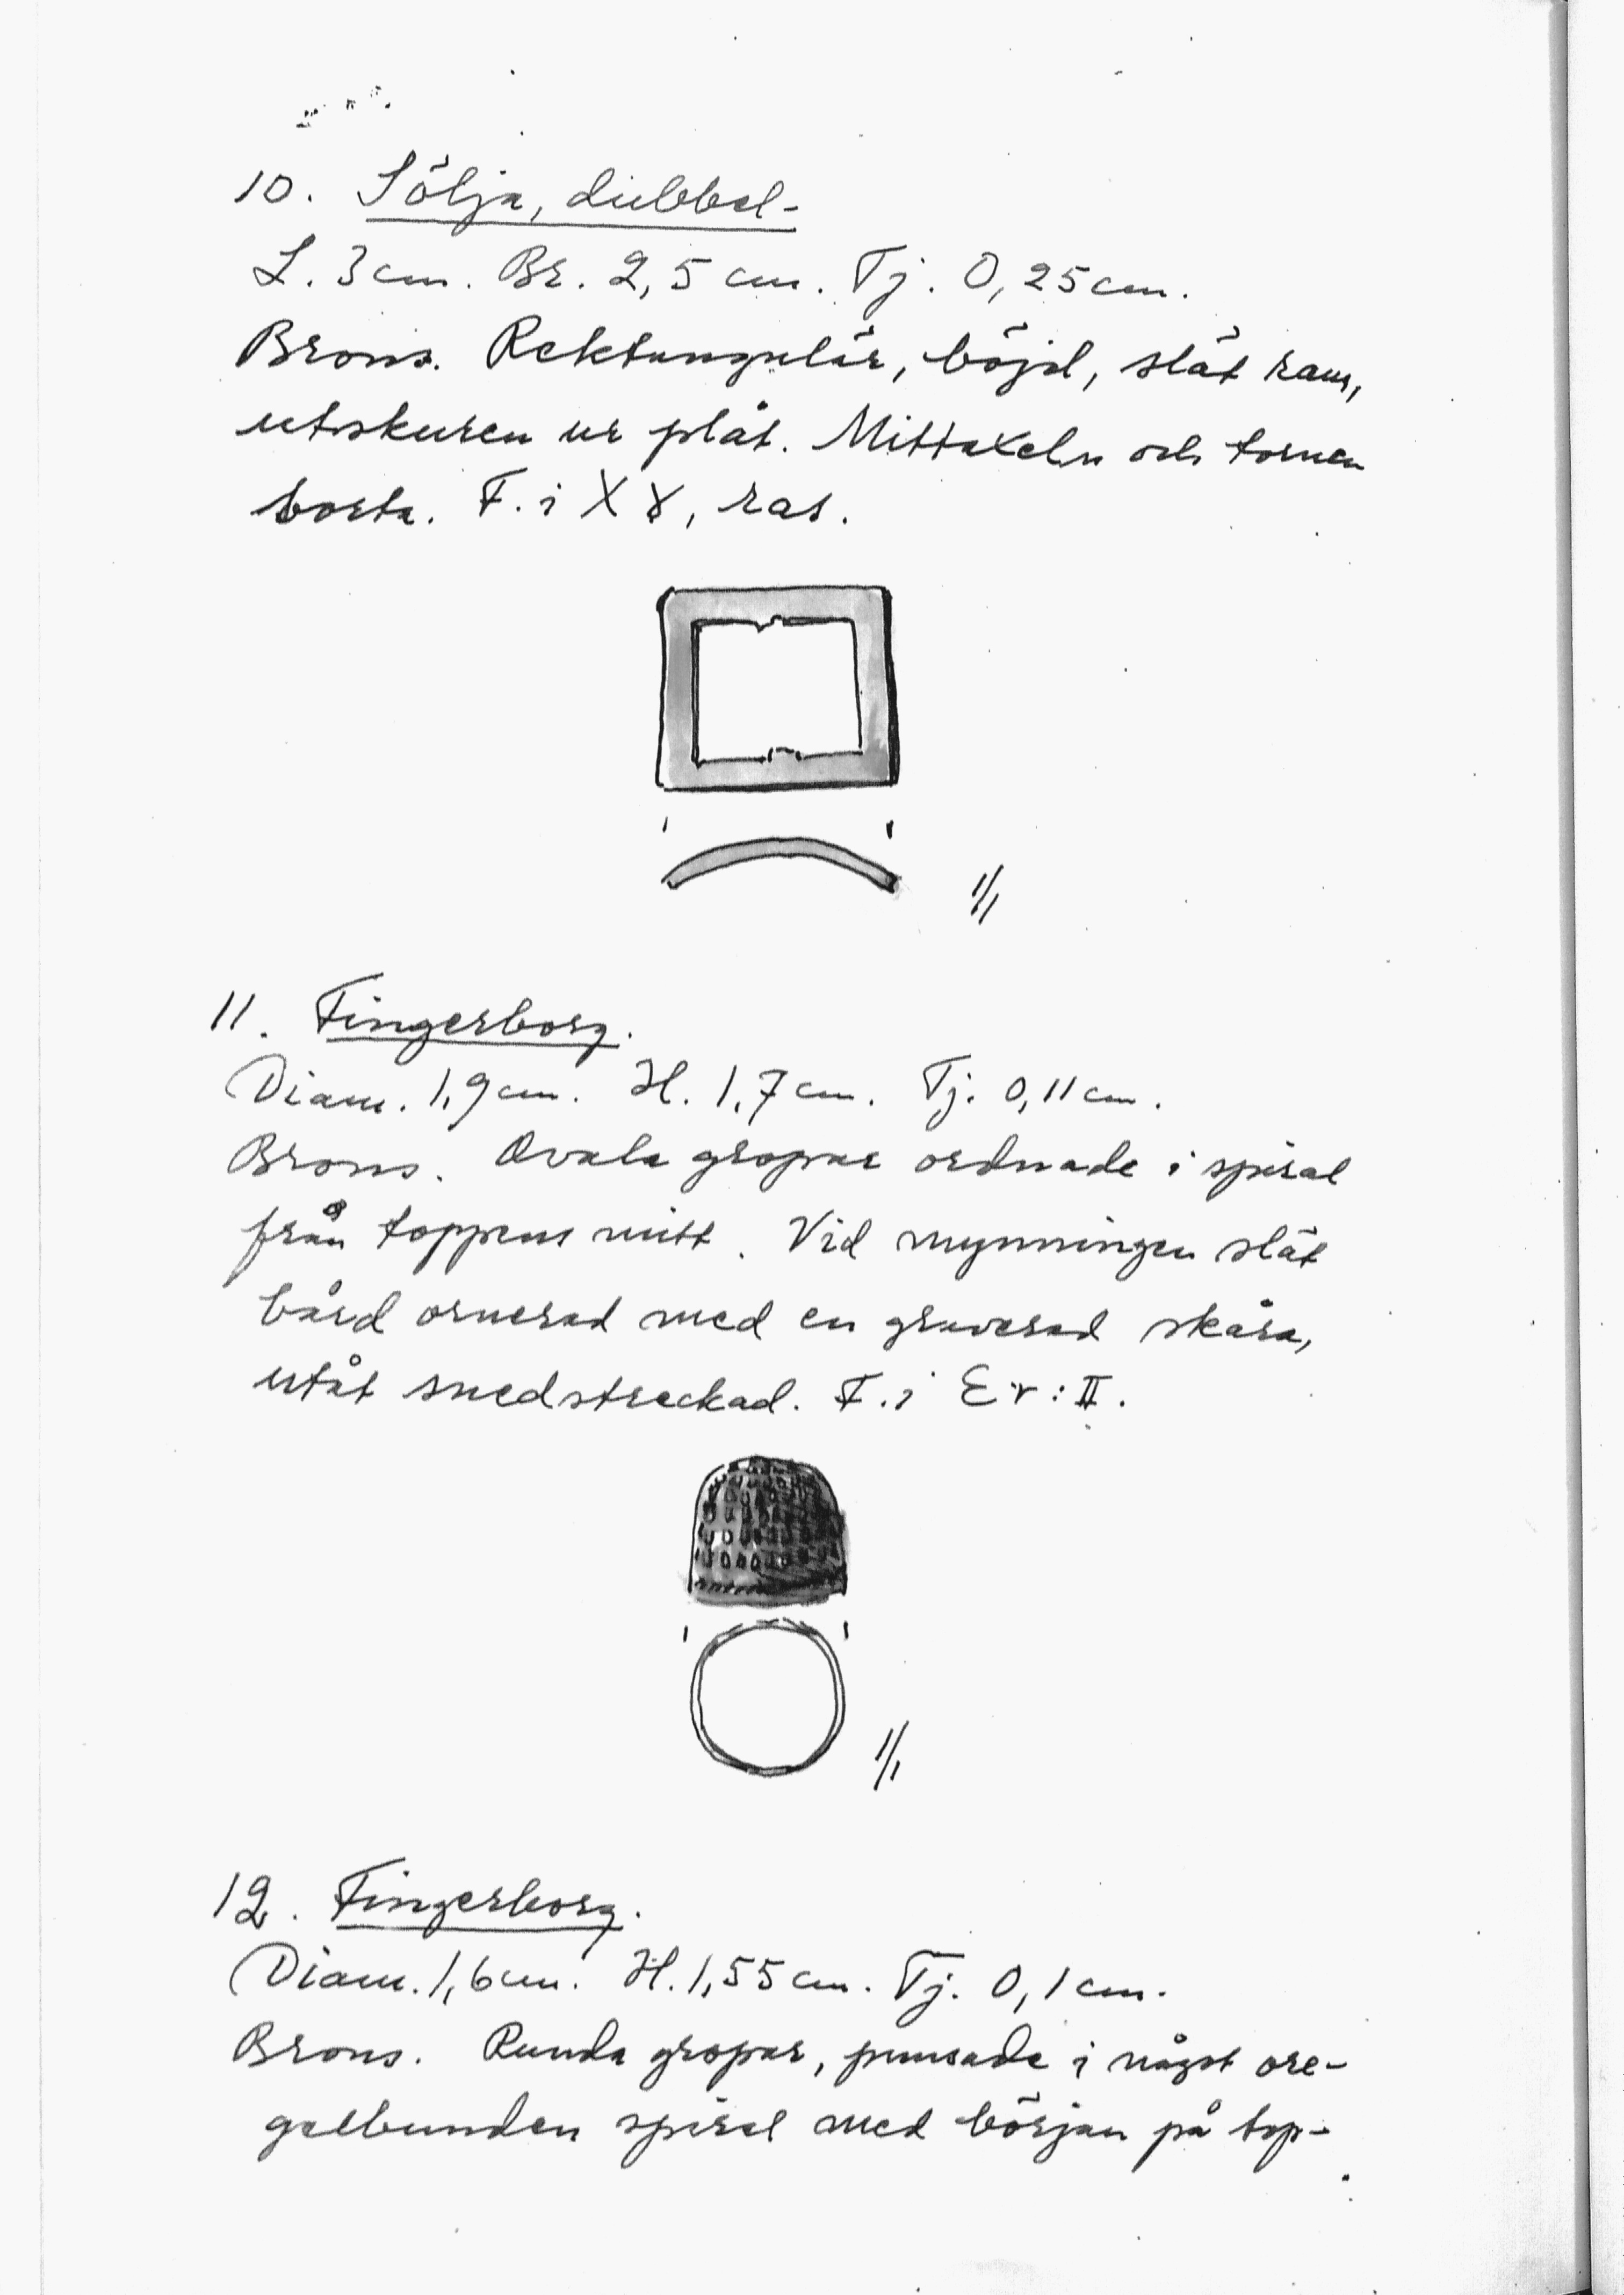 10. Sölja, dubbel-
L. 3 cm. Br. 2,5 cm. Tj. 0,25 cm.
Brons. Rektangulär, böjd, slät ram,
utskuren ur plåt. Mittaxeln och tornen
borta. F. i X 8, ras.
1/1
11. Fingerborg.
Diam. 1,9 cm. H. 1,7 cm. Tj. 0,11 cm.
Brons. Ovala gropar ordnade i spiral
från toppens mitt. Vid mynningen slät
bård ornerad med en graverad skåra,
utåt snedstreckad. F. i E v : II.
1/1
12. Fingerborg.
Diam. 1,6 cm. H. 1,55 cm. Tj. 0,1 cm.
Brons. Runda gropar, punsade i något ore-
gelbunden spiral med början på top-